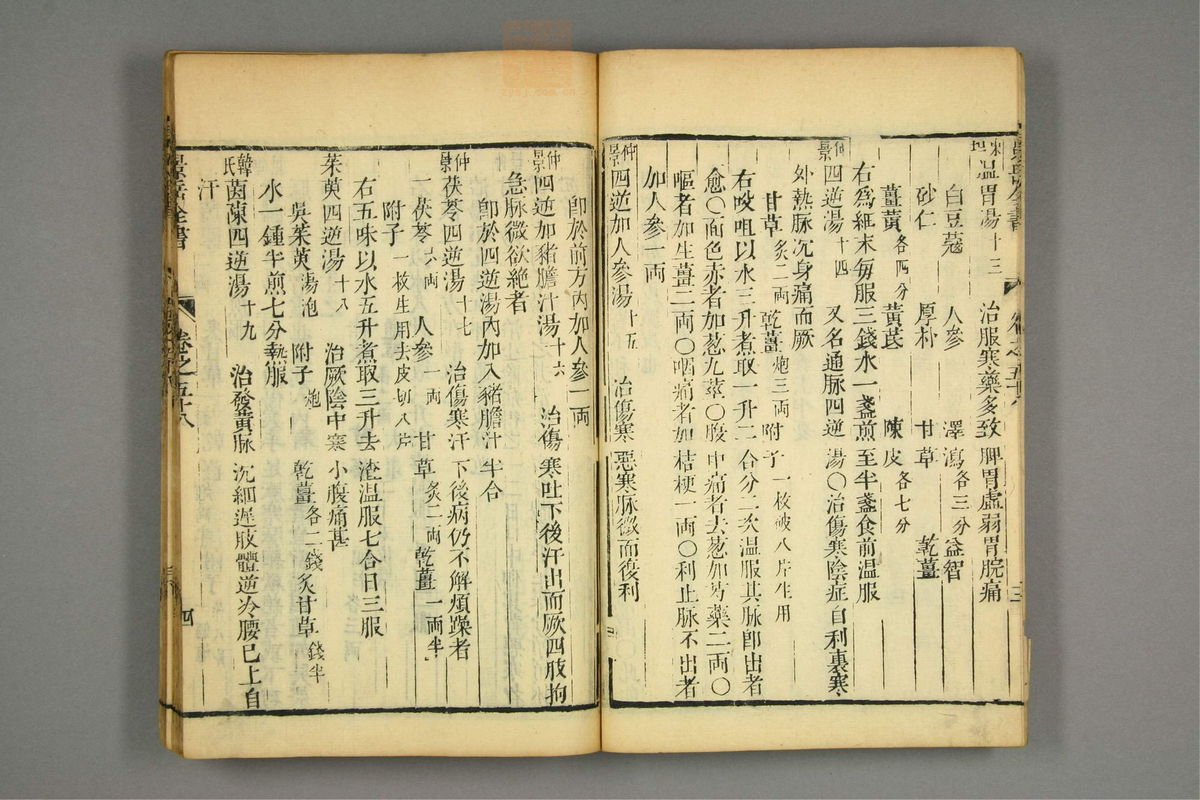 東垣溫胃湯十三 治服寒藥多致脾胃虛弱胃脘痛
白豆蔻 人參 澤瀉各三分 益智
砂仁 厚朴 甘草 乾薑
薑黃各四分 黃芪 陳皮各七分
右爲細末每服三錢水一盞煎至半盞食前溫服
仲景四逆湯十四 又名通脉四逆湯〇治傷寒陰症自利裏寒
外熱脉沉身痛而厥
甘草炙二両 乾薑炮三両 附子一枚破八片生用
右㕮咀以水三升煮取一升二合分二次溫服其脉卽出者
愈〇面色赤者加葱九莖〇腹中痛者去葱加芍藥二両〇
嘔者加生薑二両〇咽痛者加桔梗一両〇利止脉不出者
加人參一両
仲景四逆加人參湯十五 治傷寒惡寒脉微而復利
卽於前方內加人參一両
仲景四逆加豬膽汁湯十六 治傷寒吐下後汗出而厥四肢拘
急脉微欲絶者
卽於四逆湯內加入豬膽汁半合
仲景茯苓四逆湯十七 治傷寒汗下後病仍不解煩躁者
一茯苓六両 人參一両 甘草炙二両 乾薑一両半
附子一枚生用去皮切八片
右五味以水五升煮取三升去渣溫服七合日三服
茱萸四逆湯十八 治厥陰中寒小腹痛甚
吳茱萸湯泡 附子炮 乾薑各二錢 炙甘草錢半
水一鍾半煎七分熱服
韓氏茵蔯四逆湯十九 治發黃脉沉細遲肢體逆冷腰已上自
汗
景岳全書 卷之五十八 四